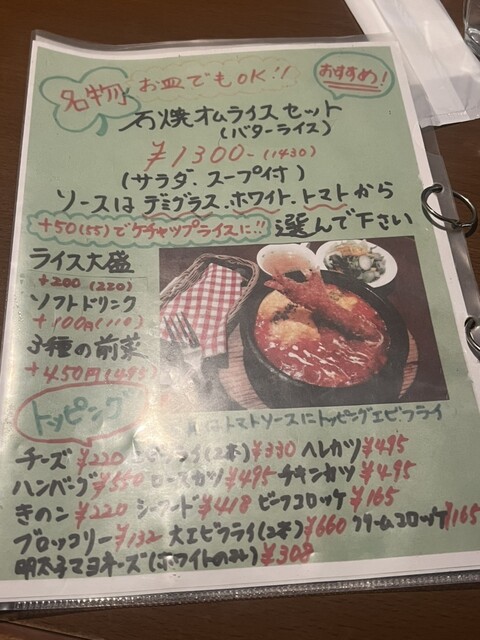 名物 お皿でもOK!!
おすすめ!
石焼オムライスセット
(バターライス)
¥1300-(1430)
(サラダ、スープ付)
ソースはデミグラス、ホワイト、トマトから
+50(55)でケチャップライスに!! 選んで下さい
ライス大盛
+200(220)
ソフトドリンク
+100円(110)
3種の前菜
+450円(495)
トッピング
トマトソースにトッピングエビフライ
チーズ¥220 エビフライ(2本)¥330 ヘレカツ¥495
ハンバーグ¥550 ロースカツ¥495 チキンカツ¥495
きのこ¥220 シーフード¥418 ビーフコロッケ¥165
ブロッコリー¥132 大エビフライ(2本)¥660 クリームコロッケ¥165
明太子マヨネーズ(ホワイトのみ)¥308